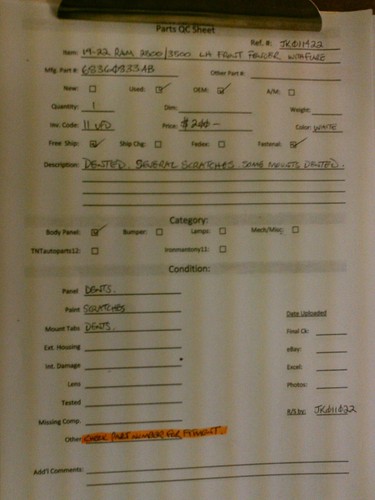 Parts QC Sheet
Ref. #: JKØ11922
Item: 19-22 RAM 2500/3500 LH FRONT FENDER W/FLARE
Mfg. Part #: 68360833AB Other Part #:
New: Used: OEM: A/M:
Quantity: 1 Dim: Weight:
Inv. Code: 11 Price: $200- Color: WHITE
Free Ship: Ship Chg: Fedex: Fastenal:
Description: DENTED. SEVERAL SCRATCHES. SOME MOUNTS DENTED.
Category:
Body Panel: Bumper: Lamps: Mech/Misc:
TNTautoparts12: Ironmantony11:
Condition:
Panel DENTS.
Paint SCRATCHES
Mount Tabs DENTS.
Date Uploaded
Ext. Housing
Final Ck:
Int. Damage
eBay:
Lens
Excel:
Tested
Photos:
Missing Comp.
R/S by: JKØ11Ø22
Other CHECK PART NUMBER FOR FITMENT.
Add'l Comments: